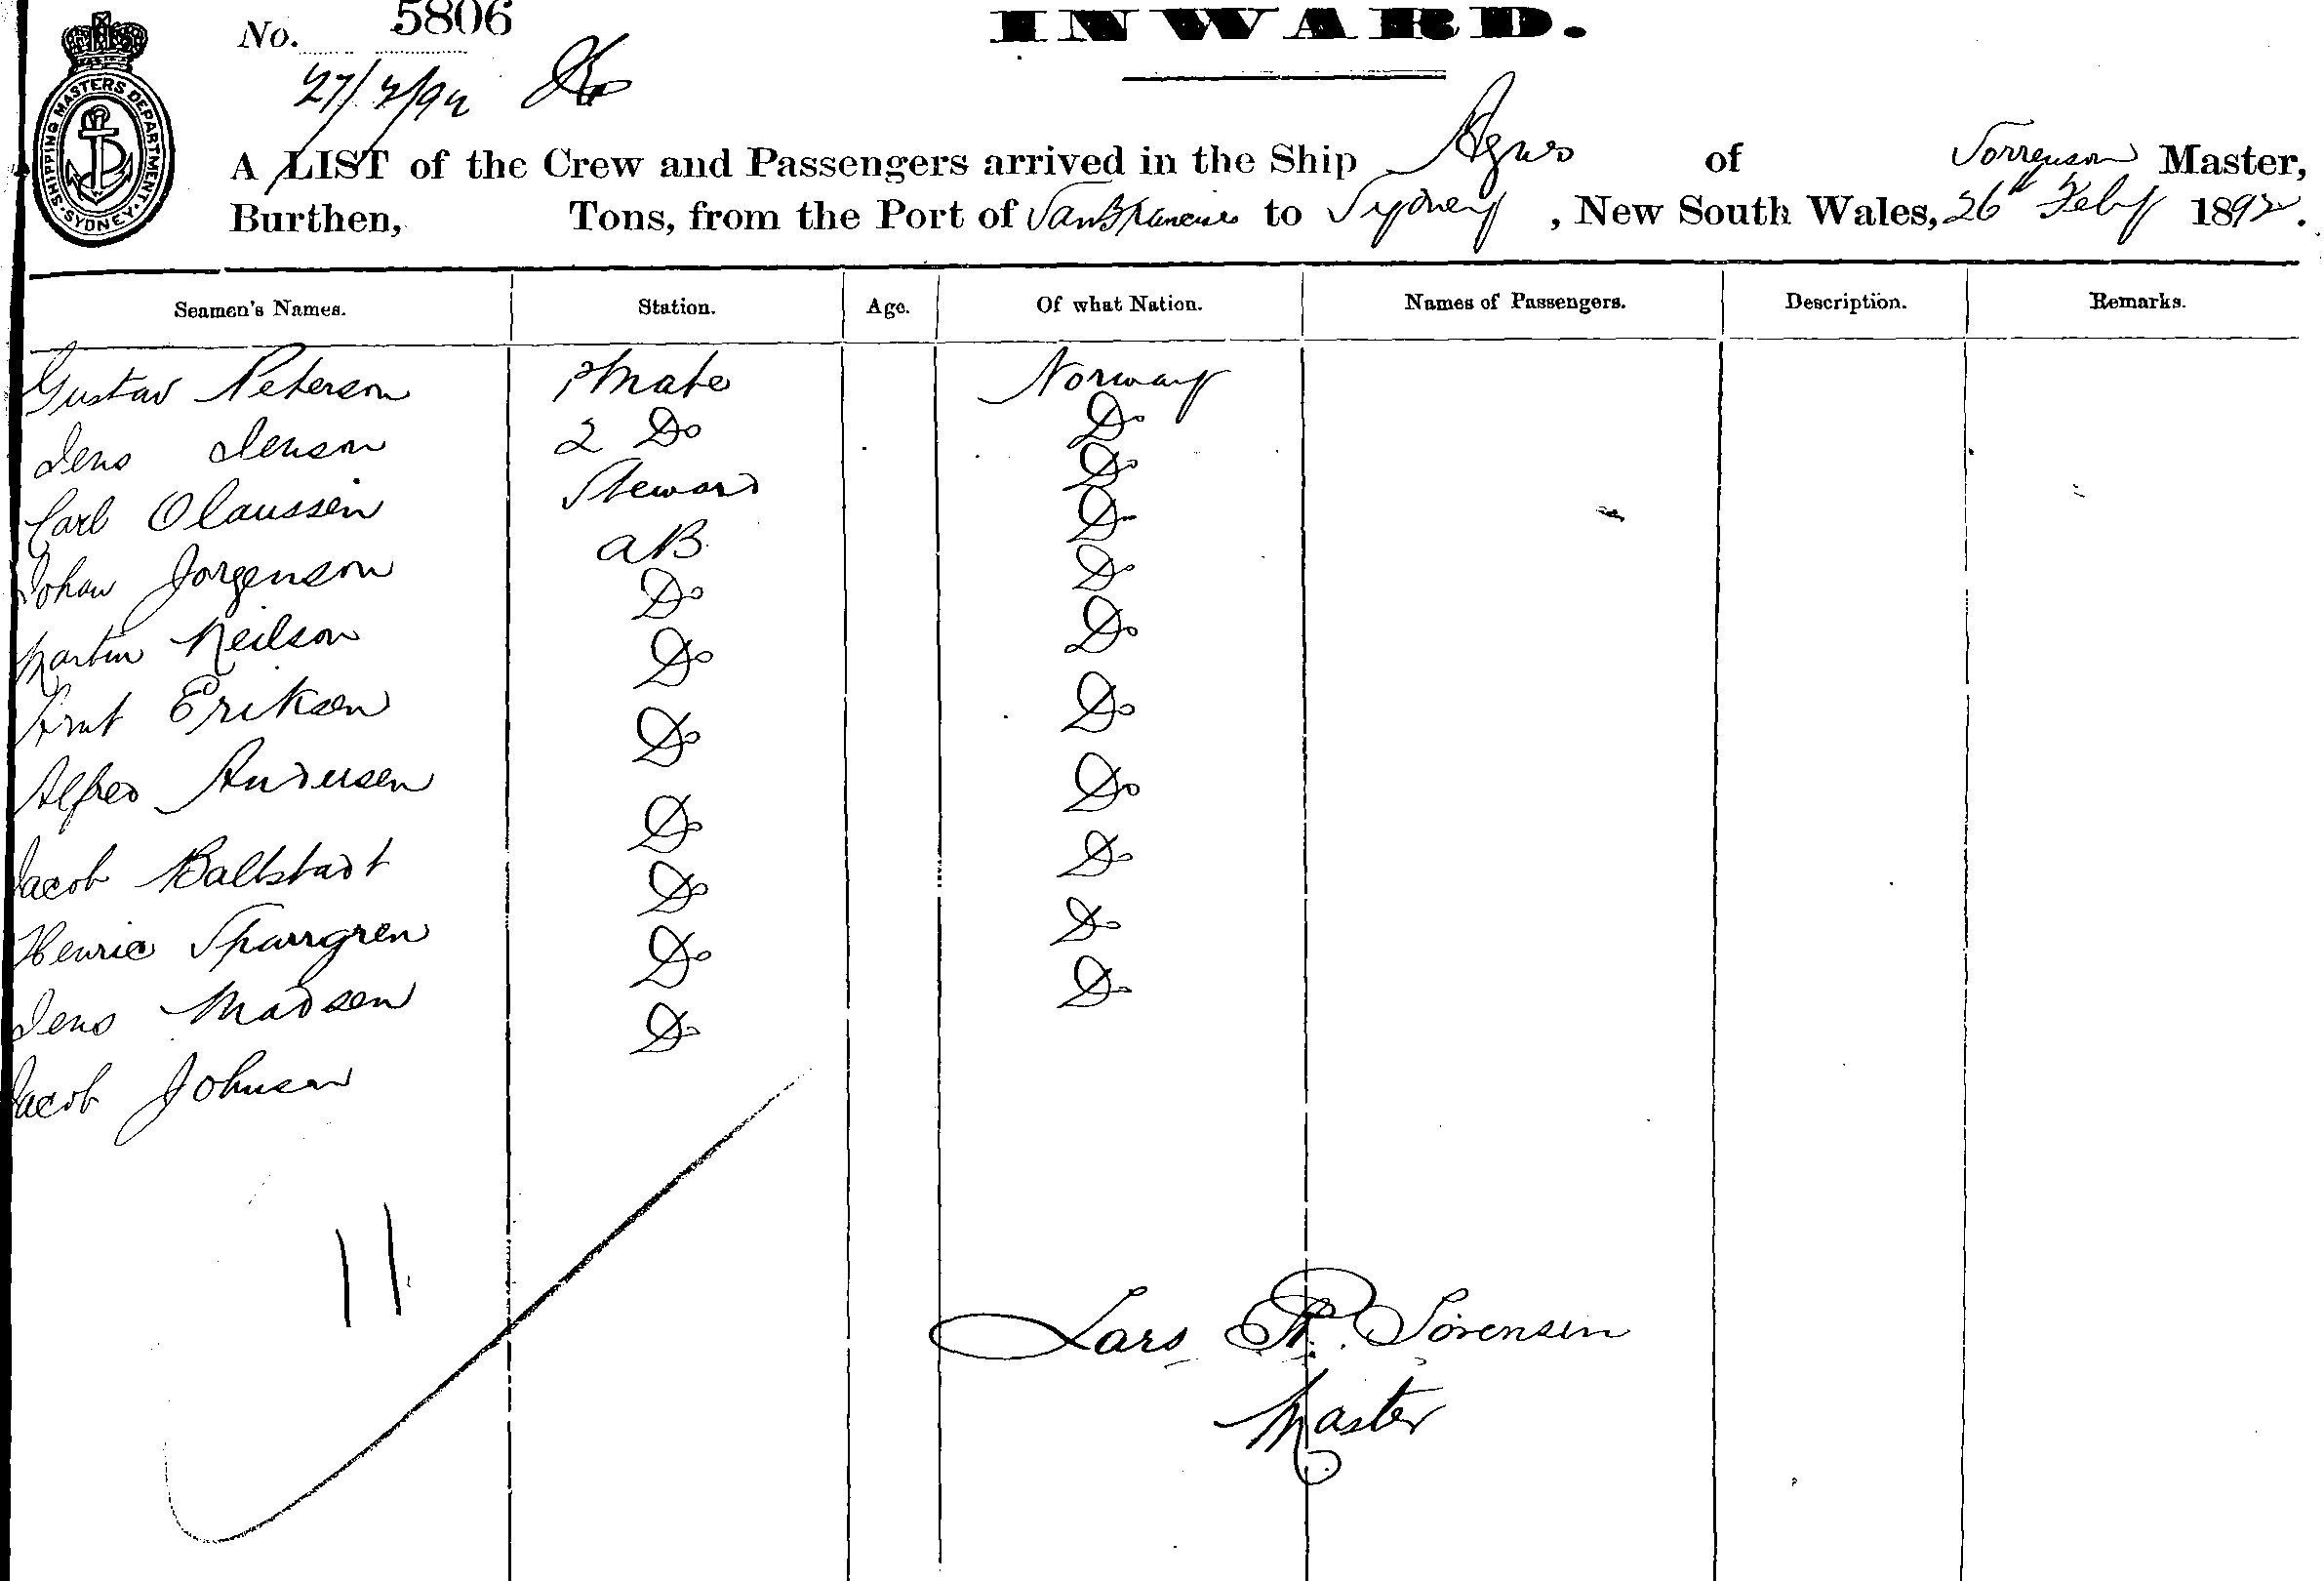 INWARD.
No. 5806
27/2/92
SHIPPING MASTERS DEPARTMENT · SYDNEY ·
A LIST of the Crew and Passengers arrived in the Ship Agnes of Sorrenson Master,
Burthen, Tons, from the Port of San Francisco to Sydney, New South Wales, 26th Feby 1892.
Seamen's Names. Station. Age. Of what Nation. Names of Passengers. Description. Remarks.
Gustav Peterson 1 Mate Norway
Jens Jenson 2 Do Do
Carl Olaussen Steward Do
Johan Jorgenson AB Do
Martin Neilson Do Do
Knut Eriksen Do Do
Alfred Andersen Do Do
Jacob Ballstadt Do Do
Henric Sparrgren Do Do
Jens Madsen Do Do
Jacob Johnson Do Do
11
Lars P. Sörensen
Master